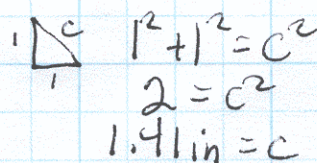 1 c 1² + 1² = c²
1
2 = c²
1.41 in = c